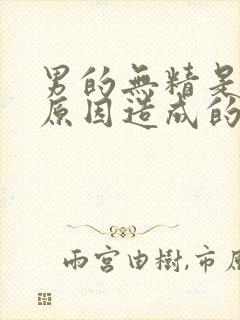 男的無精是
原因造成的
雨宮由樹,市原